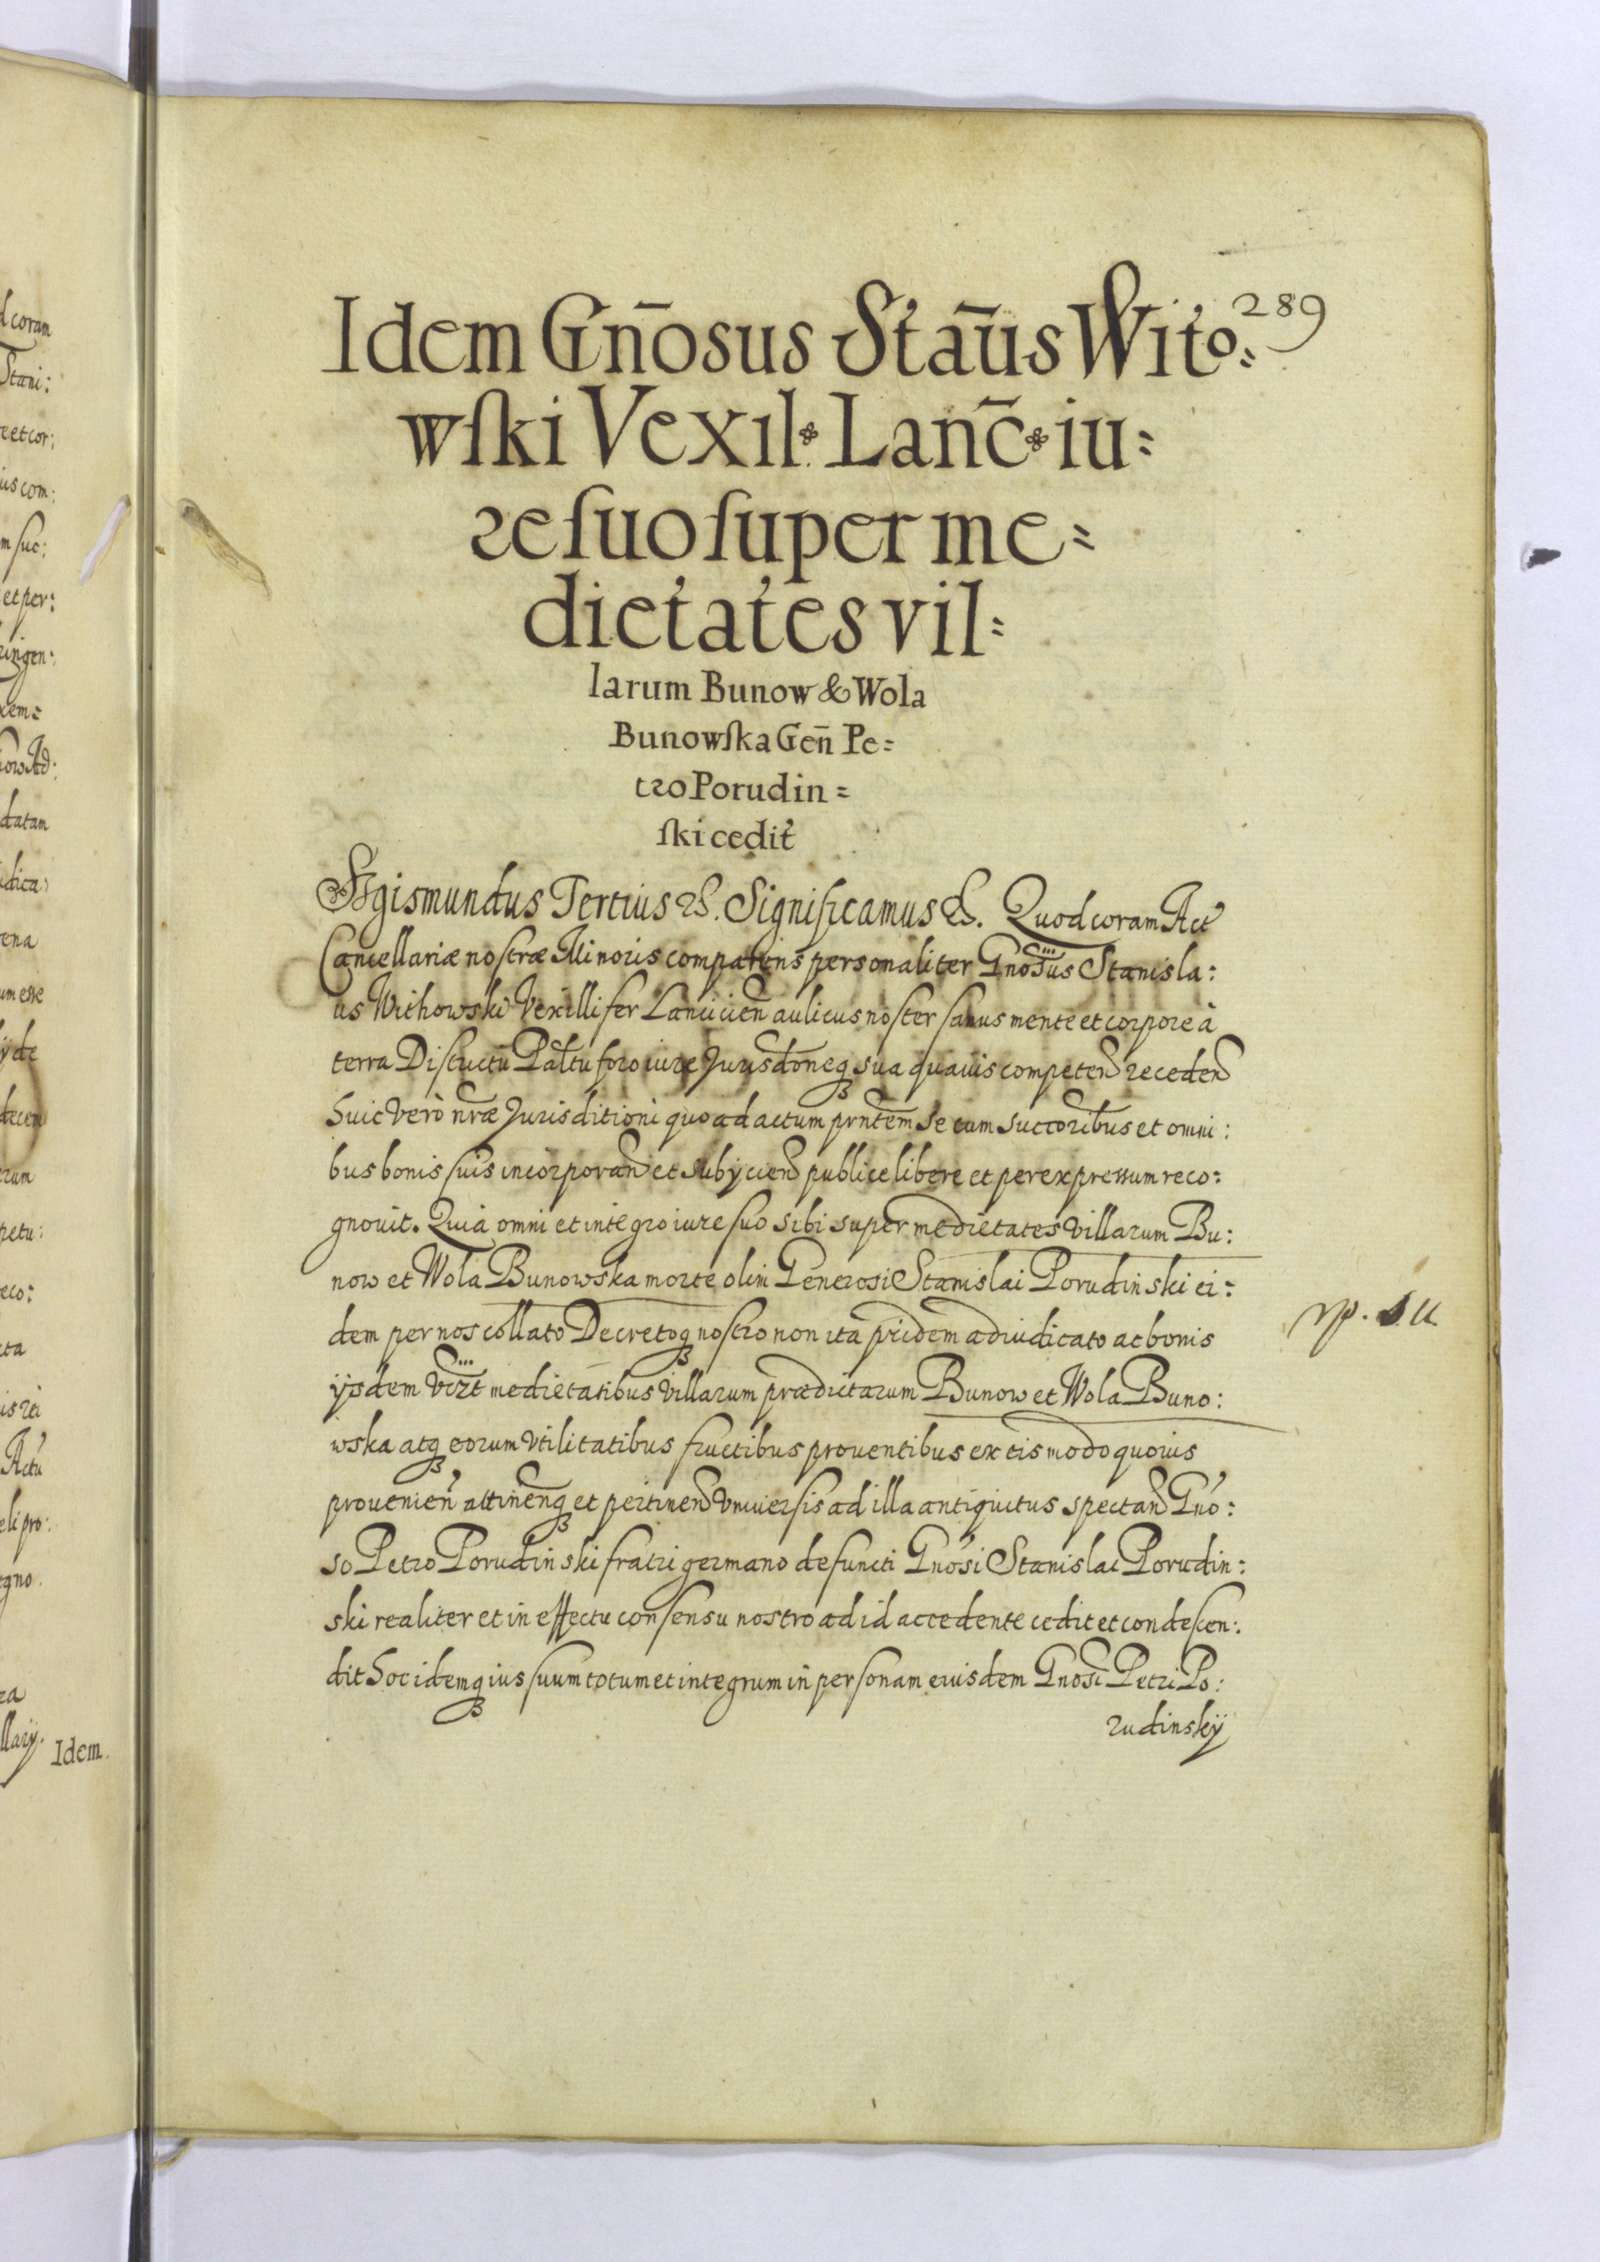 289
Idem Gn̄osus Stāus Wito=
wſki Vexil. Lanc̄ iu=
re ſuo ſuper me=
dietates vil=
larum Bunow & Wola
Bunowſka Gen̄ Pe=
tro Porudin=
ſki cedit
Sigismundus Tertius &. Significamus &. Quod coram Act
Cancellariæ nostræ Minoris comparens personaliter Gnosus Stanisla:
us Withowski Vexillifer Lancicien aulicus noster sanus mente et corpore à
terra Districtu Paltu foro iure Jurisdoneq sua quauis competen receden
huic vero nræ Jurisditioni quo ad actum prntem se cum succoribus et omni:
bus bonis suis incorporan et subÿcien publice libere et per expressum reco:
gnouit. Quia omni et integro iure suo sibi super medietates villarum Bu:
now et Wola Bunowska morte olim Generosi Stanislai Porudinski ei:
dem per nos collato Decretoq nostro non ita pridem adiudicato ac bonis
ijsdem vizt medietatibus villarum prædictarum Bunow et Wola Buno:
wska atq eorum vtilitatibus fructibus prouentibus ex eis modo quouis
prouenien attinenq et pertinen vniuersis ad illa antiquitus spectan Gno:
so Petro Porudinski fratri germano defuncti Gnosi Stanislai Porudin:
ski realiter et in effectu consensu nostro ad id accedente cedit et condescen:
dit hoc idemq ius suum totum et integrum in personam eiusdem Gnosi Petri Po:
rudinskÿ
d coram
Stani:
re et cor:
ius com:
m suc:
et per:
ringen:
xem=
datam
dica
rena
um esse
ÿ de
decem
rum
petu:
eco:
cta
is rei
Actu
eli pro:
egno.
ra
llarÿ.
Idem